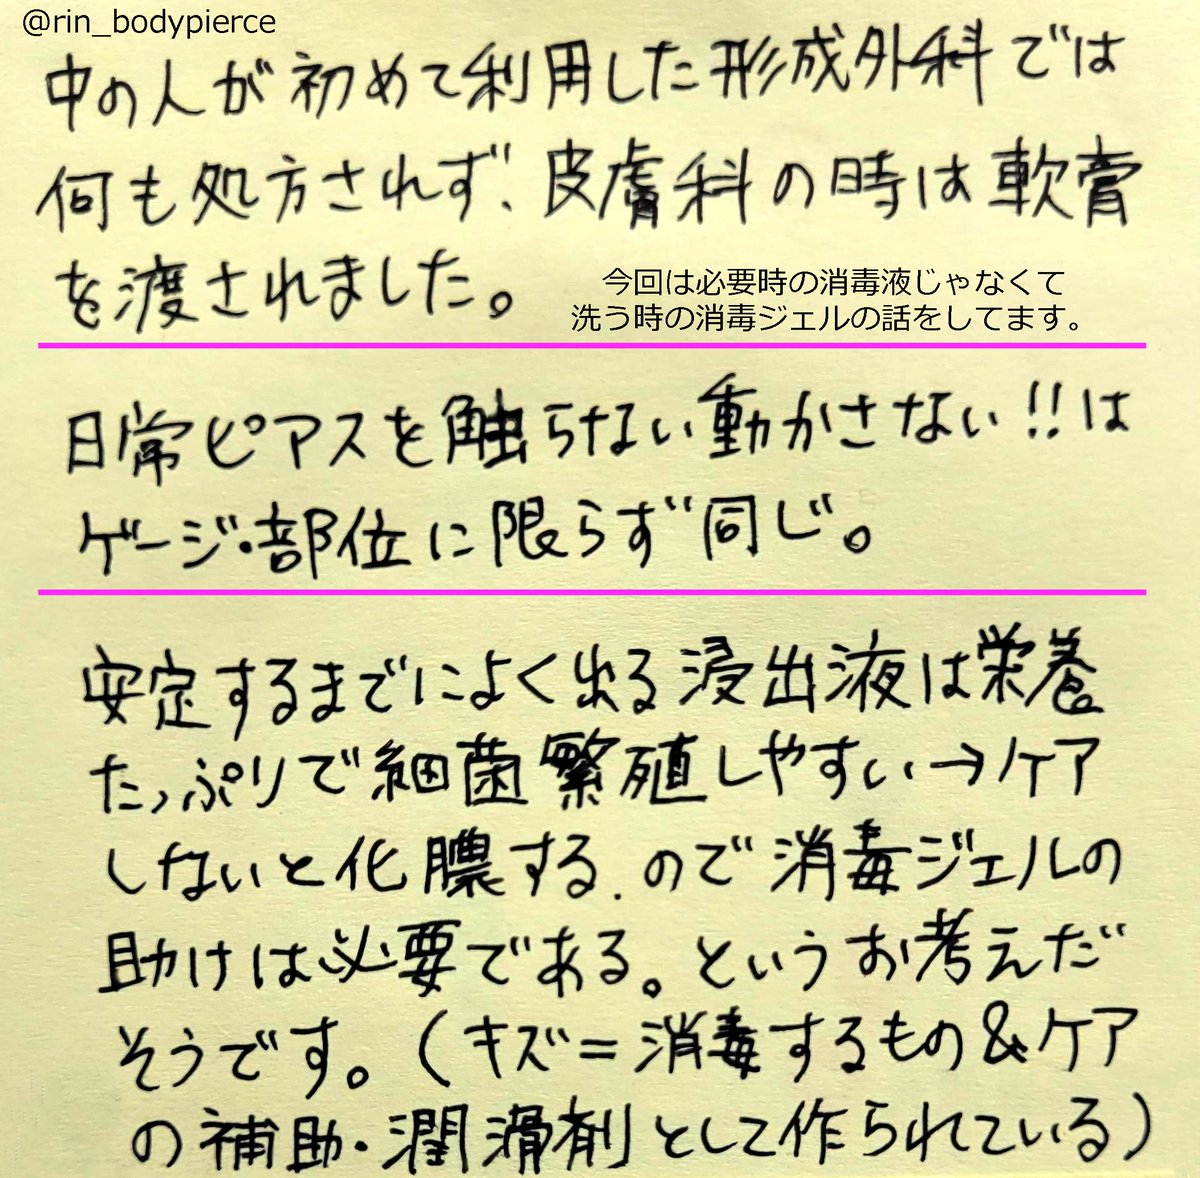 @rin_bodypierce
中の人が初めて利用した形成外科では
何も処方されず、皮膚科の時は軟膏
を渡されました。
今回は必要時の消毒液じゃなくて
洗う時の消毒ジェルの話をしてます。
日常ピアスを触らない動かさない!!は
ゲージ・部位に限らず同じ。
安定するまでによく出る浸出液は栄養
たっぷりで細菌繁殖しやすい→ケア
しないと化膿する、ので消毒ジェルの
助けは必要である。というお考えだ
そうです。(キズ=消毒するもの&ケア
の補助・潤滑剤として作られている)